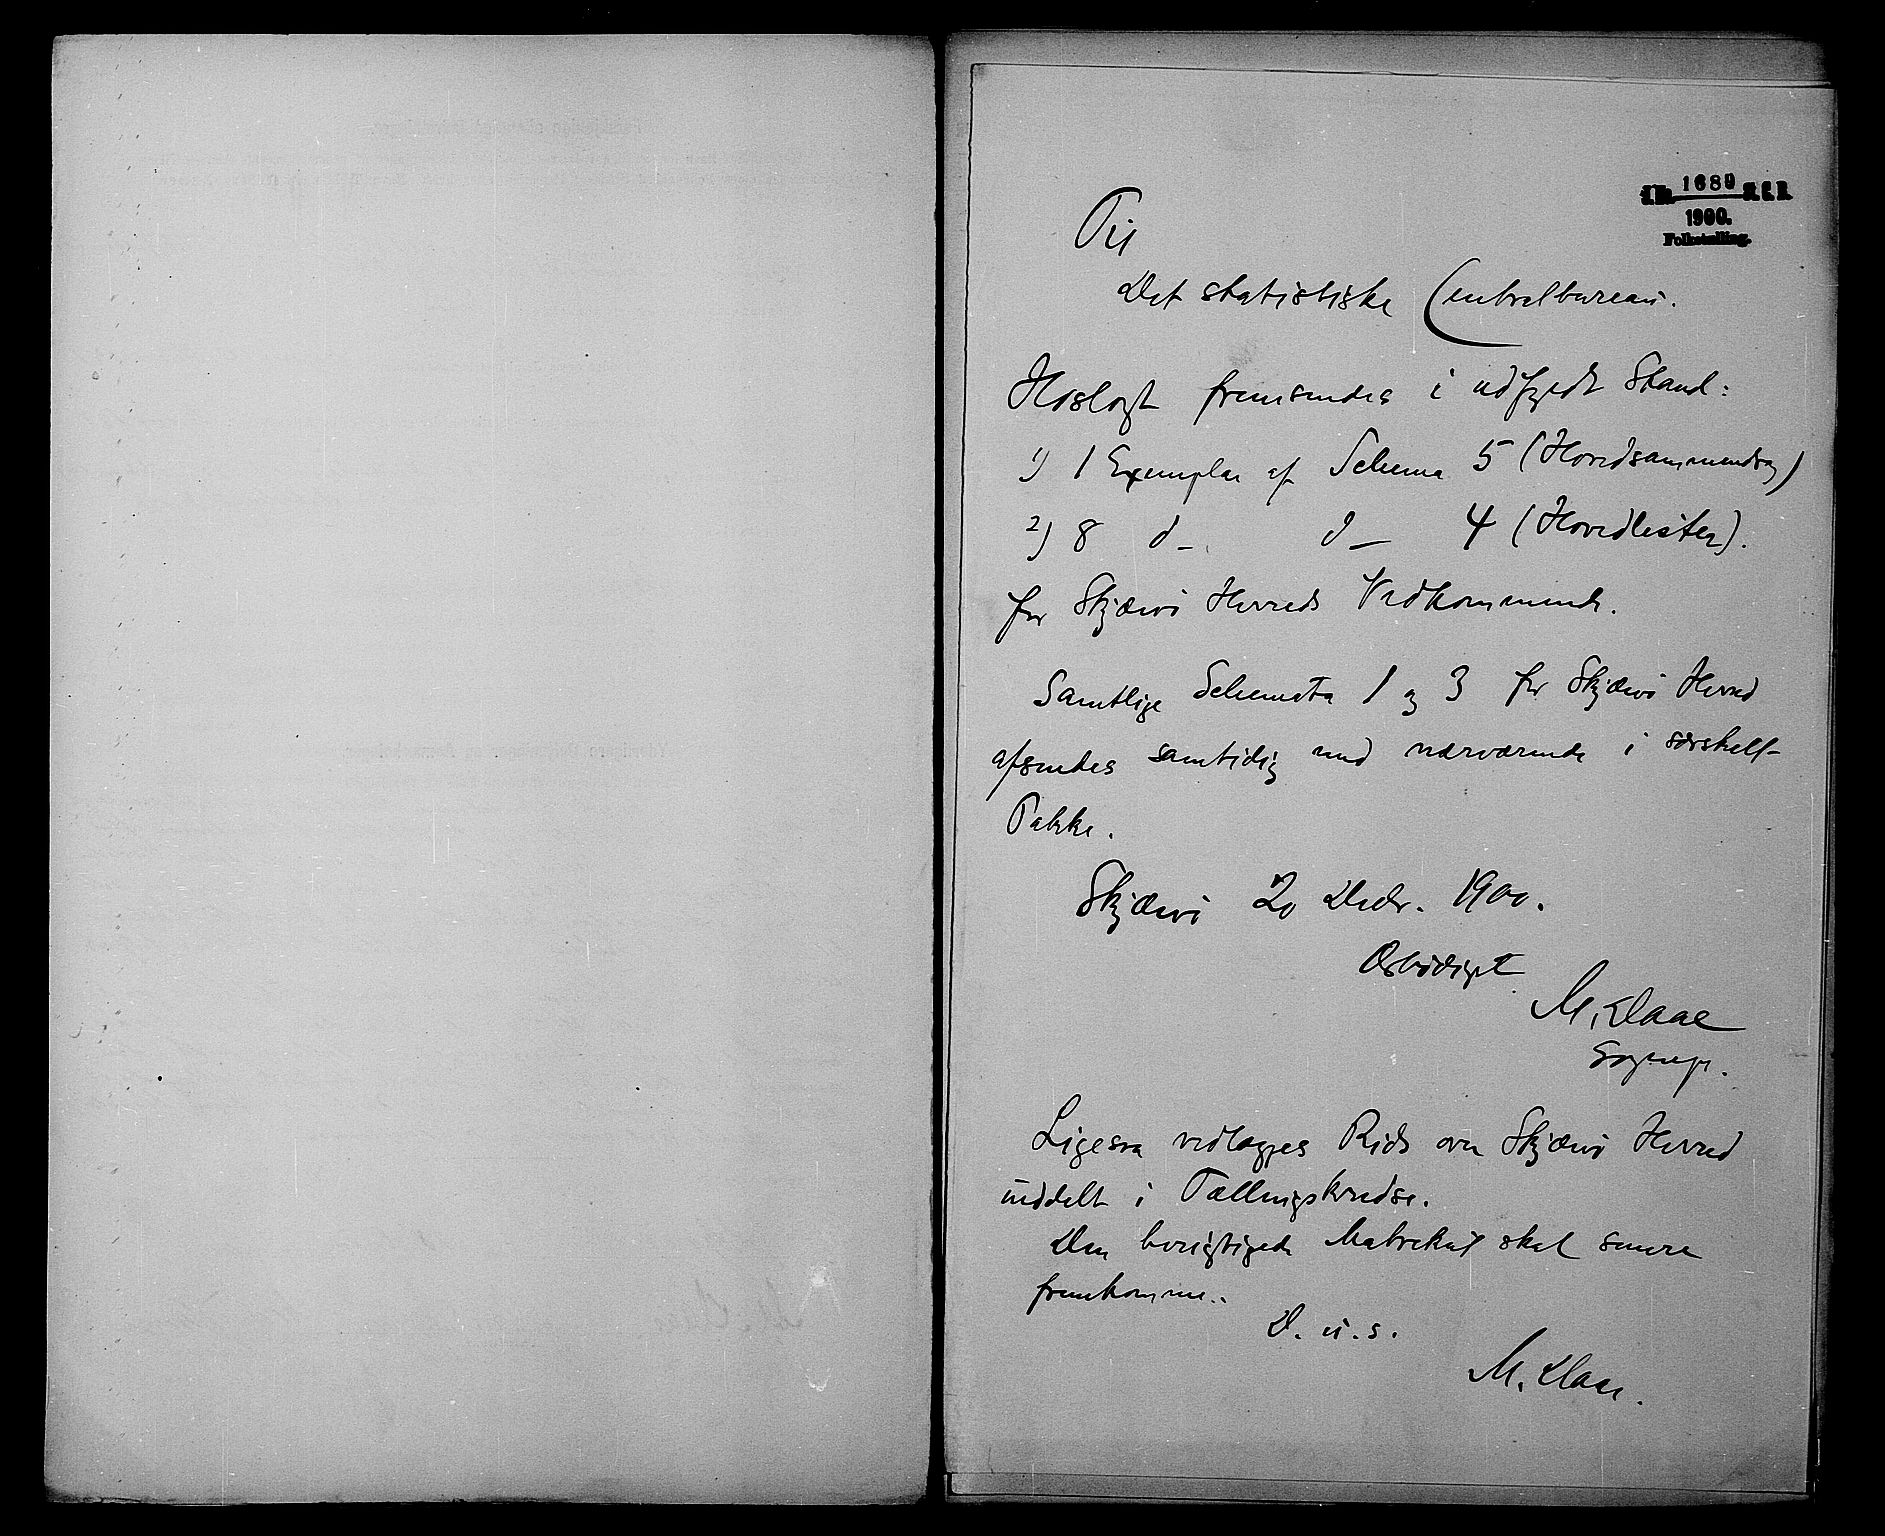 J. No. 1689 S. C. B.
1900.
Folketælling.
Til
Det statistiske Centralbureau.
Hoslagt fremsendes i udfyldt Stand:
1) 1 Exemplar af Schema 5 (Hovedsammendrag)
2) 8 d_ d_ 4 (Hovedlister).
for Skjærvø Herreds Vedkommende.
Samtlige Schemata 1 og 3 for Skjærvø Herred
afsendes samtidig med nærværende i særskelt
Pakke.
Skjærvø 20 Decbr. 1900.
Ærbødigst
M. Daae
Sognepr.
Ligesaa vedlægges Rids over Skjærvø Herred
inddelt i Tællingskredse.
Den berigtigede Matrikul skal senere
fremkomme.
D. u. s.
M. Daae.